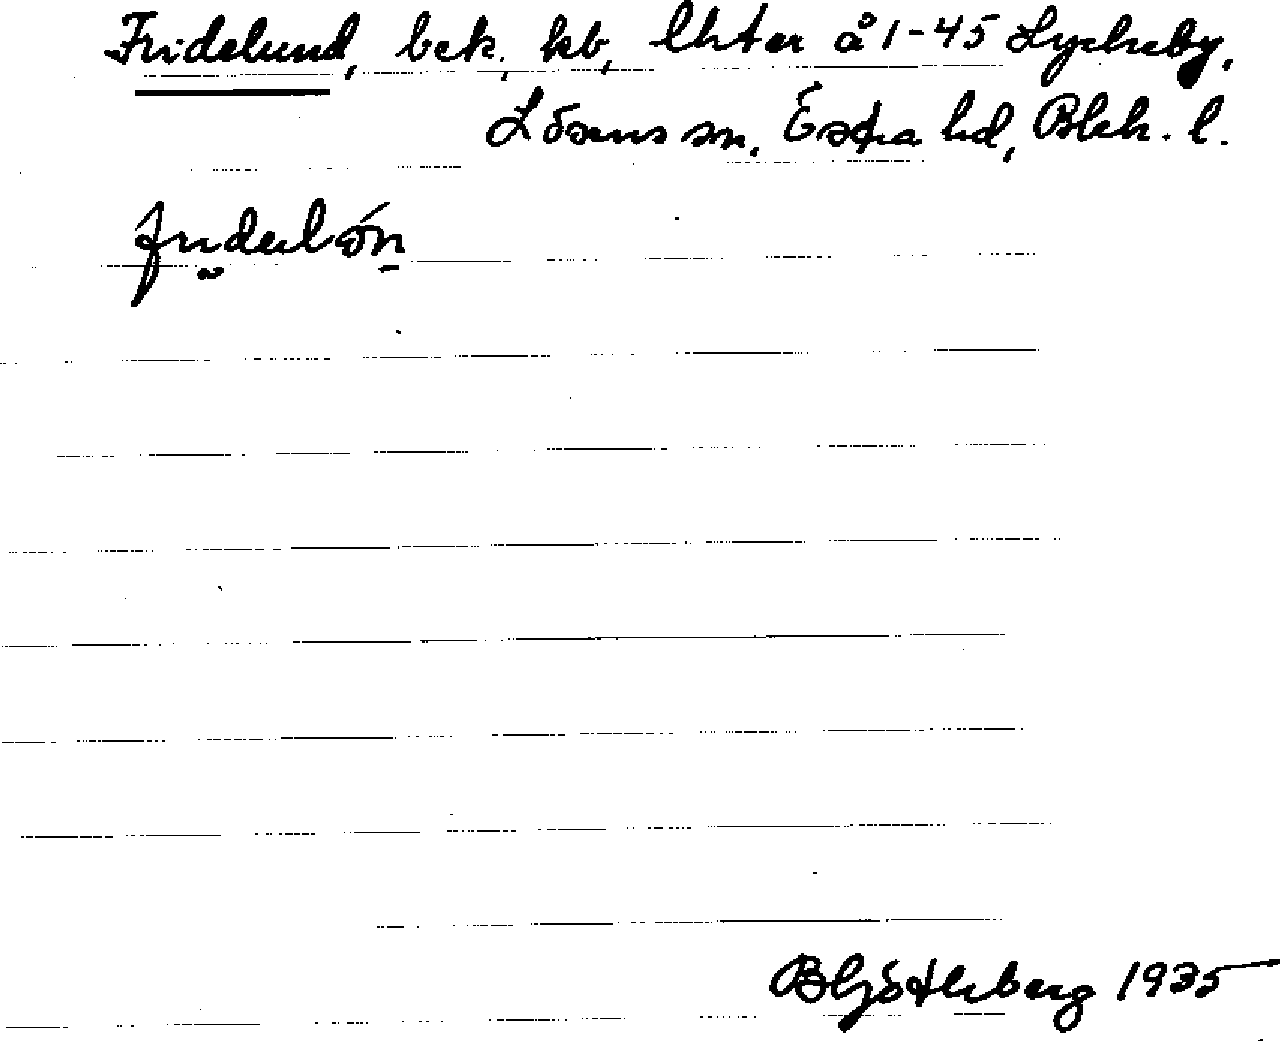 Fridelund, bek. kb, lhter å 1-45 Lyckeby,
Lösens sn, Östra hd, Blek. l.
B Götlerberg 1935